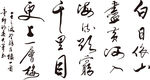 白日依山
盡黃河入
海流欲窮
千里目
更上一層樓